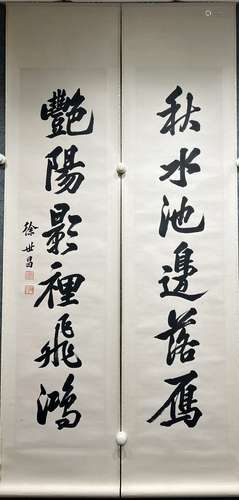 秋水池邊落雁
艷陽影裡飛鴻
徐世昌